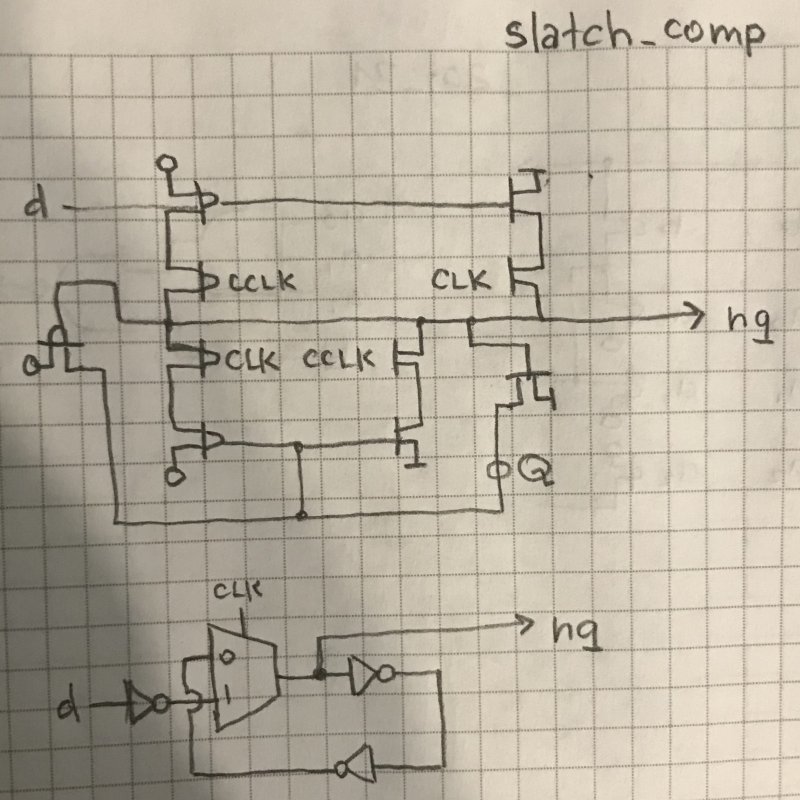 slatch_comp
d
CCLK CLK
nq
CLK CCLK
Q
CLK
nq
0
d 1